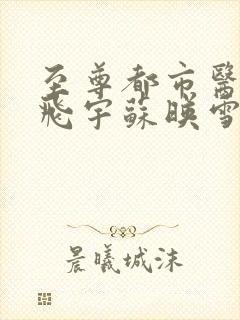 至尊都市醫
飛宇蘇映雪
晨曦城沫